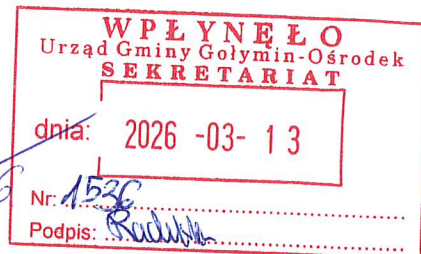 WPŁYNĘŁO
Urząd Gminy Gołymin-Ośrodek
SEKRETARIAT
dnia: 2026 -03- 13
Nr: 1536
Podpis: